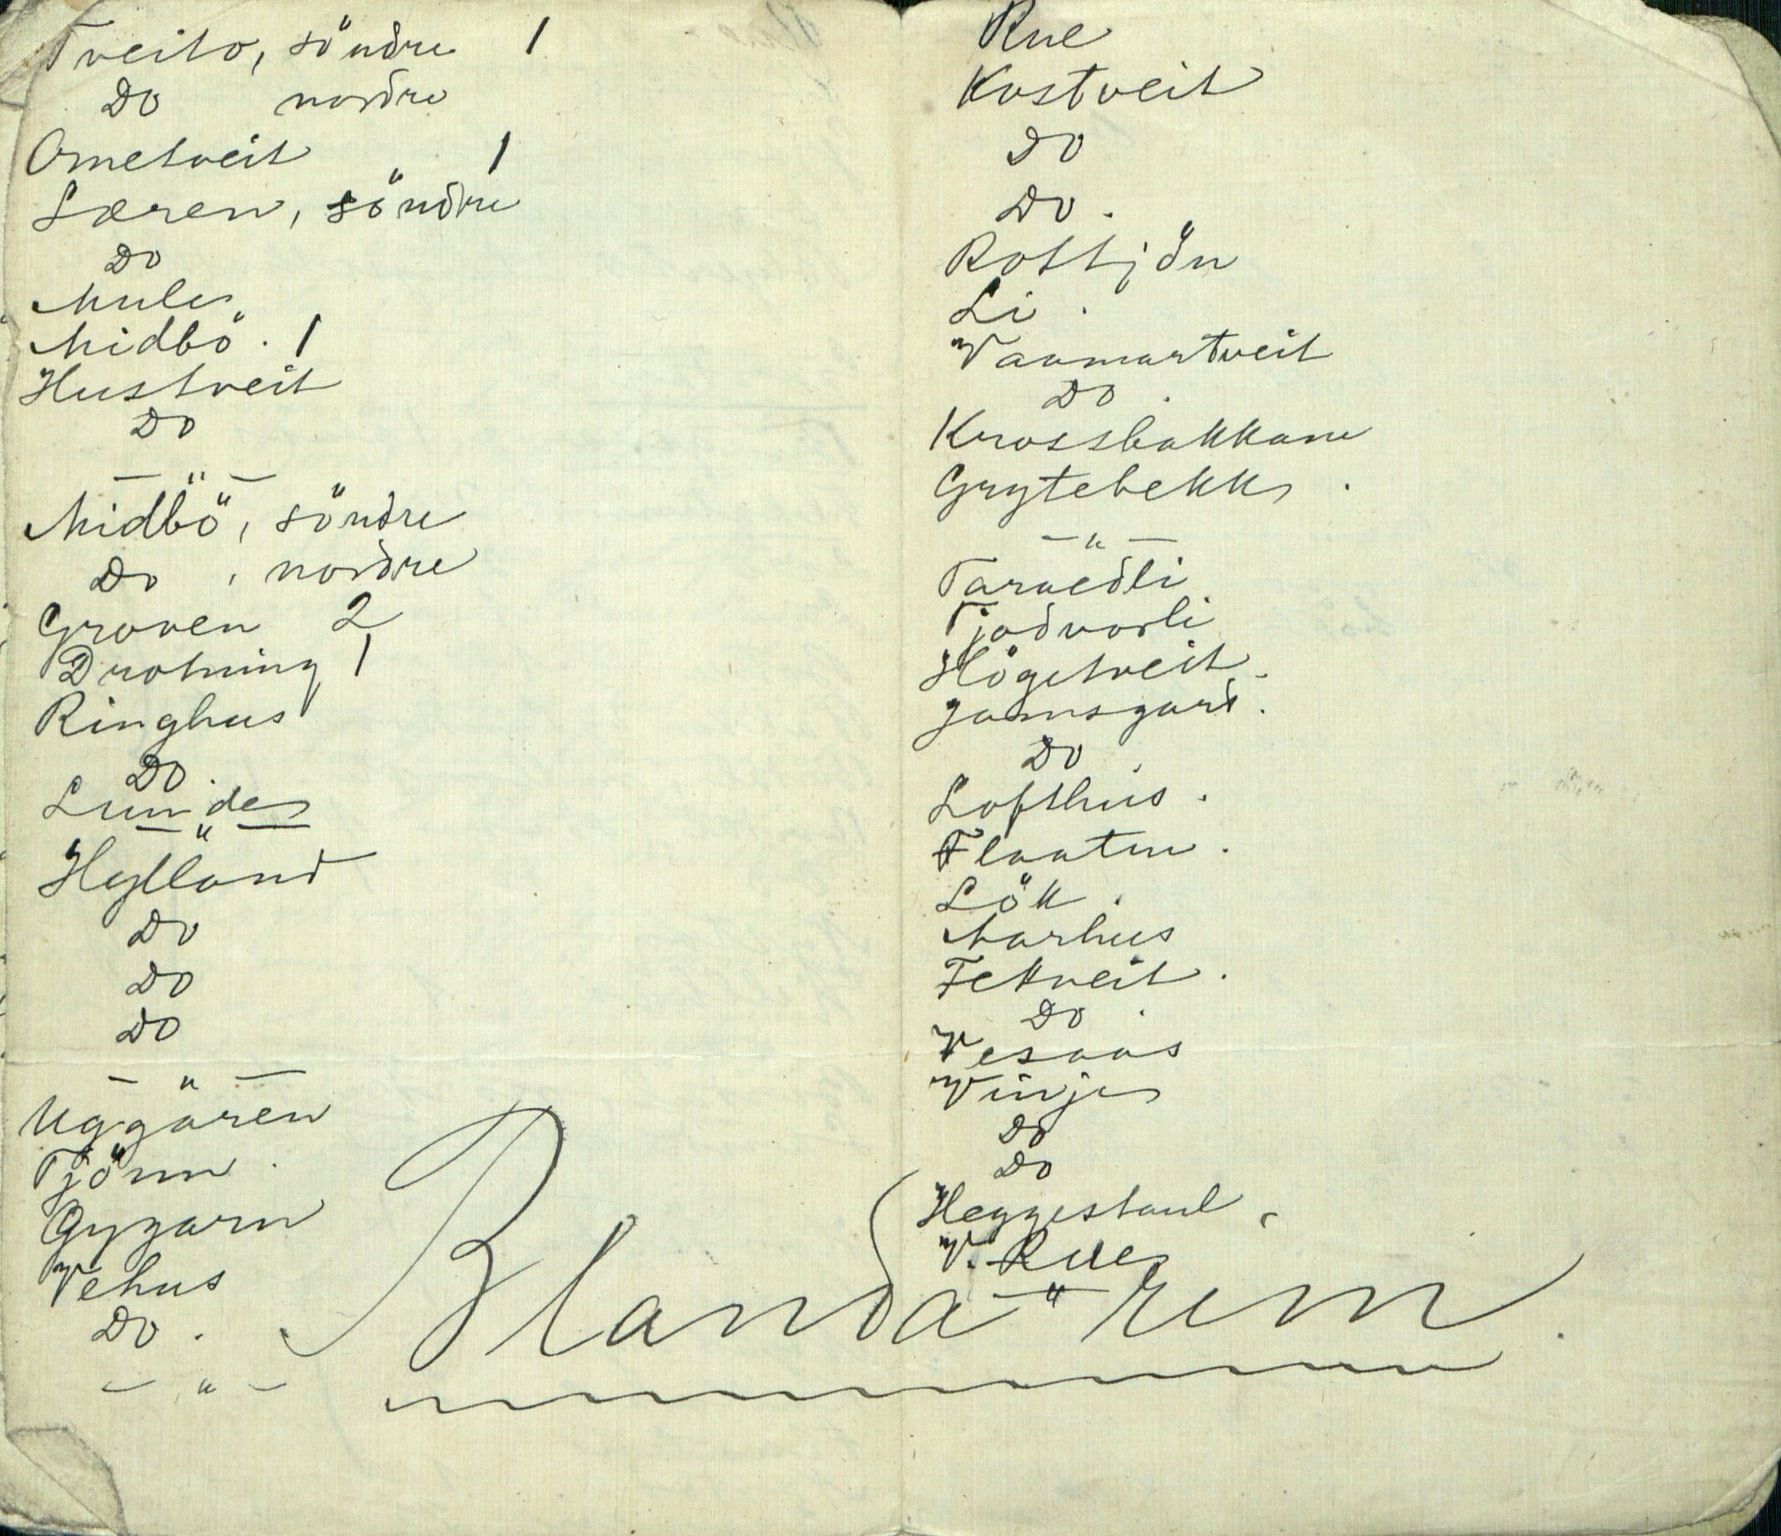 Tveito, söndre 1
Do nordre
Ometveit 1
Læren, söndre
Do
Mule
Midbö. 1
Hustveit
Do
— " —
Midbö, söndre
Do, nordre
Groven 2
Drotning 1
Ringhus
Do.
Lunde
— " —
Hylland
Do
Do
Do
— " —
Uggaren
Tjönn.
Gygarn
Vehus
Do.
— " —
Rue
Kostveit
Do
Do.
Rottjön
Li.
Vaamartveit
Do.
Krossbakkane
Grytebekk.
— " —
Taraldli
Tjodvorli
Högetveit.
Jamsgard.
Do.
Lofthus.
Flaatin.
Lök.
Aarhus
Fekveit.
Do.
Vesaas
Vinje
Do
Do
Heggestaul.
V. Rue
— " —
Blanda rem.